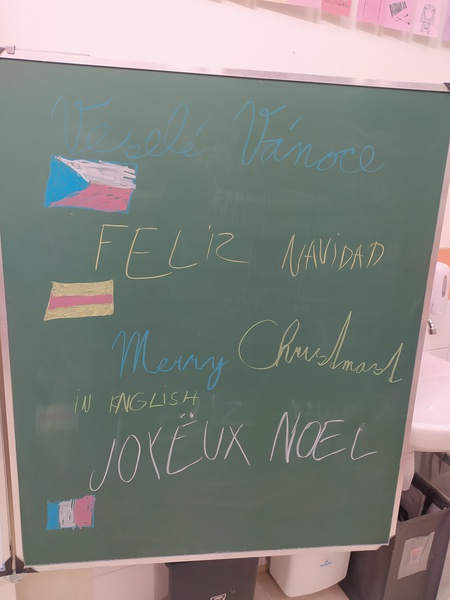 Veselé Vánoce
FELIZ NAVIDAD
Merry Christmast
IN ENGLISH
JOYËUX NOEL